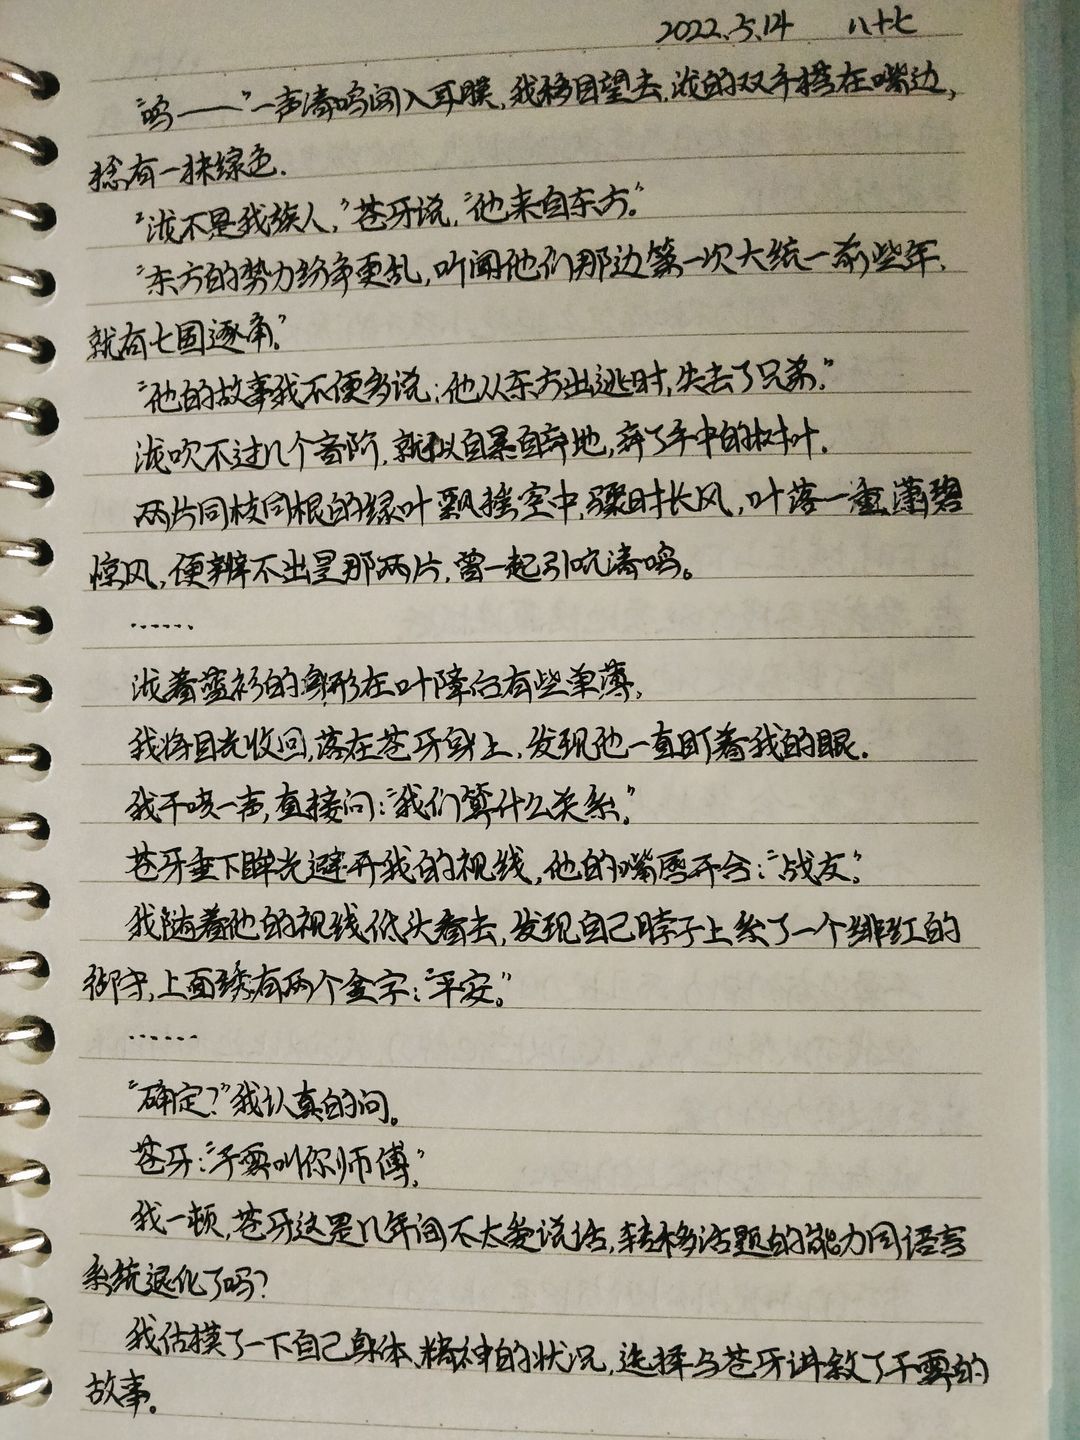 2022.5.14 八十七
“呜——”一声清鸣闯入耳膜,我移目望去,泷的双手横在嘴边,
捻有一抹绿色.
“泷不是我族人,”苍牙说,“他来自东方。”
“东方的势力纷争更乱,听闻他们那边第一次大统一前些年,
就有七国逐角。”
“他的故事我不便多说;他从东方出逃时,失去了兄弟.”
泷吹不过几个音阶,就似自暴自弃地,弃了手中的树叶.
两片同枝同根的绿叶飘摇空中,骤时长风,叶落一重,薄碧
惊风,便辨不出是那两片,曾一起引吭清鸣。
……
泷着蓝衫的身形在叶降后有些单薄.
我将目光收回,落在苍牙身上,发现他一直盯着我的眼.
我干咳一声,直接问:“我们算什么关系。”
苍牙垂下眸光避开我的视线,他的嘴唇开合:“战友。”
我随着他的视线低头看去,发现自己脖子上系了一个绯红的
御守,上面绣有两个金字:“平安。”
……
“确定?”我认真的问。
苍牙:“子雾叫你师傅.”
我一顿,苍牙这是几年间不太爱说话,转移话题的能力同语言
系统退化了吗?
我估摸了一下自己身体、精神的状况,选择与苍牙讲叙了子雾的
故事。